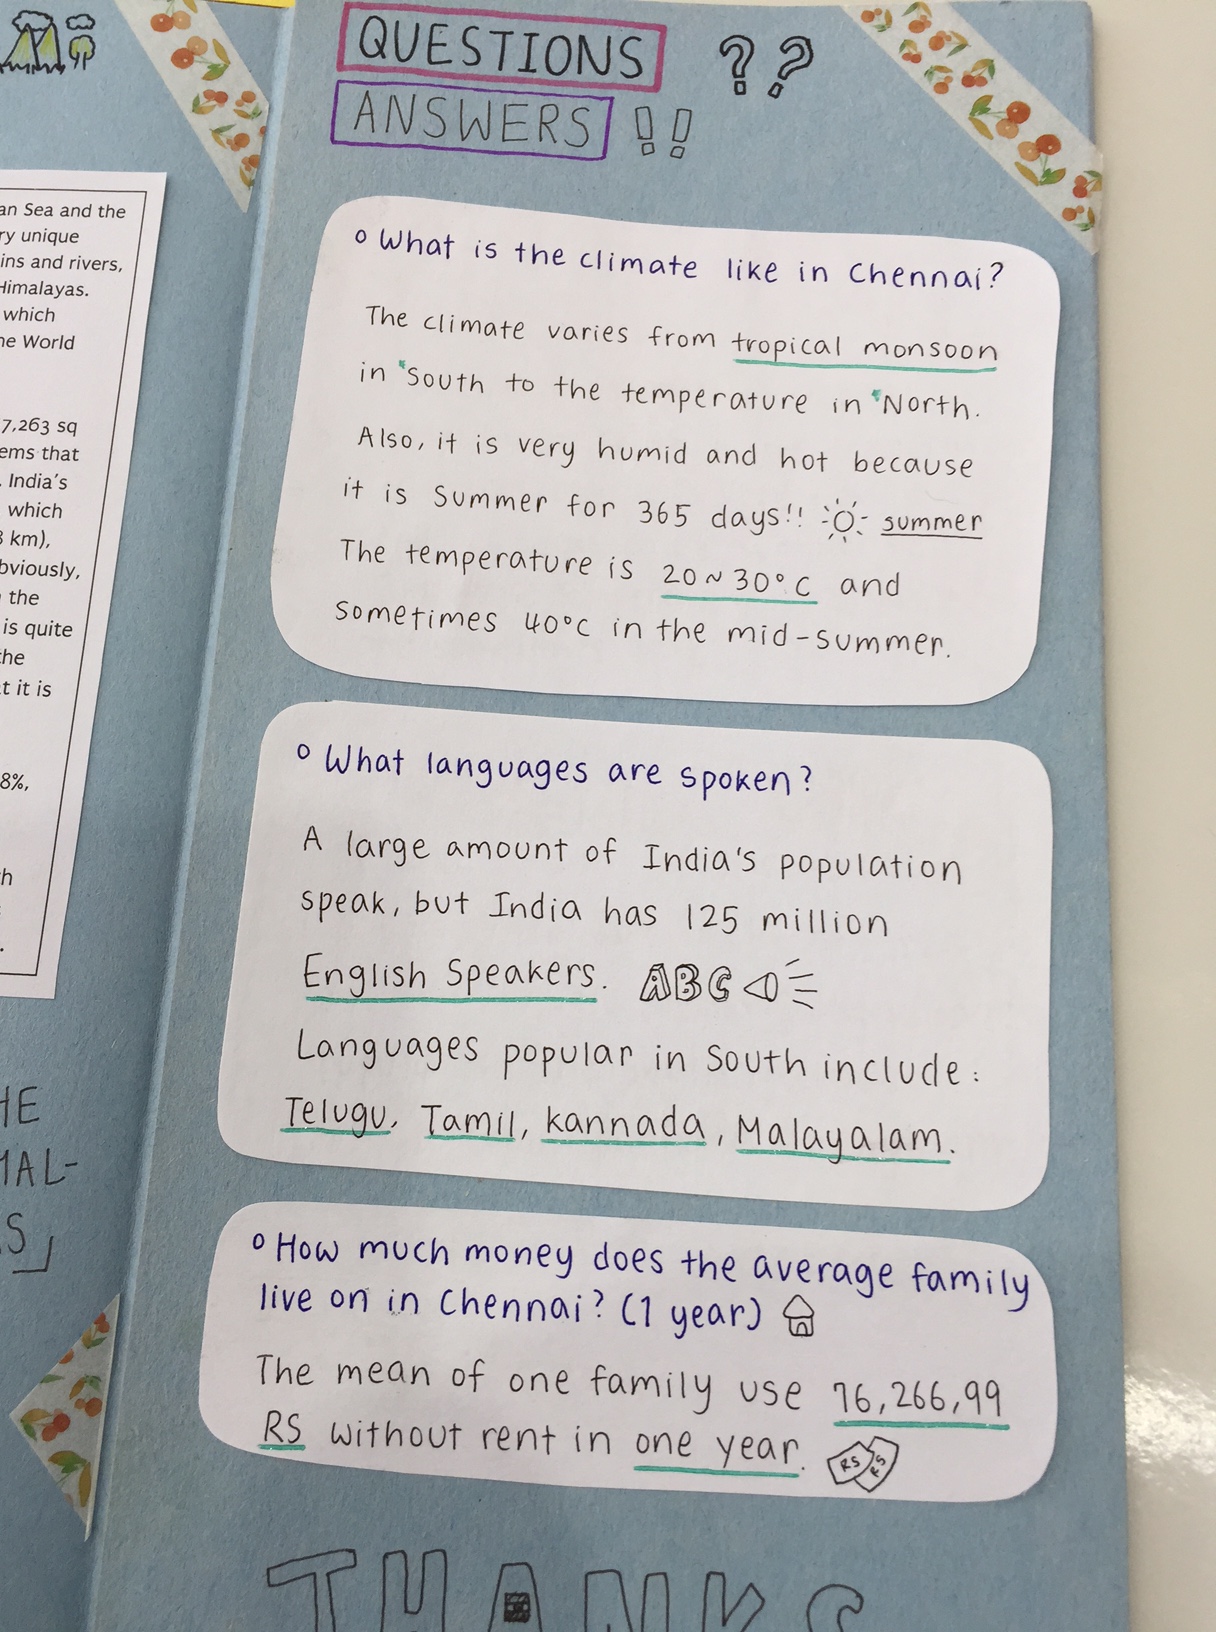 an Sea and the
ry unique
ins and rivers,
Himalayas.
which
he World
7,263 sq
ems that
. India's
which
km),
bviously,
the
is quite
the
t it is
8%,
HE
MAL-
S」
QUESTIONS ??
ANSWERS !!
o What is the climate like in Chennai?
The climate varies from tropical monsoon
in South to the temperature in North.
Also, it is very humid and hot because
it is Summer for 365 days!! summer
The temperature is 20~30°C and
sometimes 40°C in the mid-summer.
o What languages are spoken?
A large amount of India's population
speak, but India has 125 million
English Speakers. ABC
Languages popular in South include:
Telugu, Tamil, kannada, Malayalam.
o How much money does the average family
live on in Chennai? (1 year)
The mean of one family use 76,266,99
RS without rent in one year. RS RS
THANKS